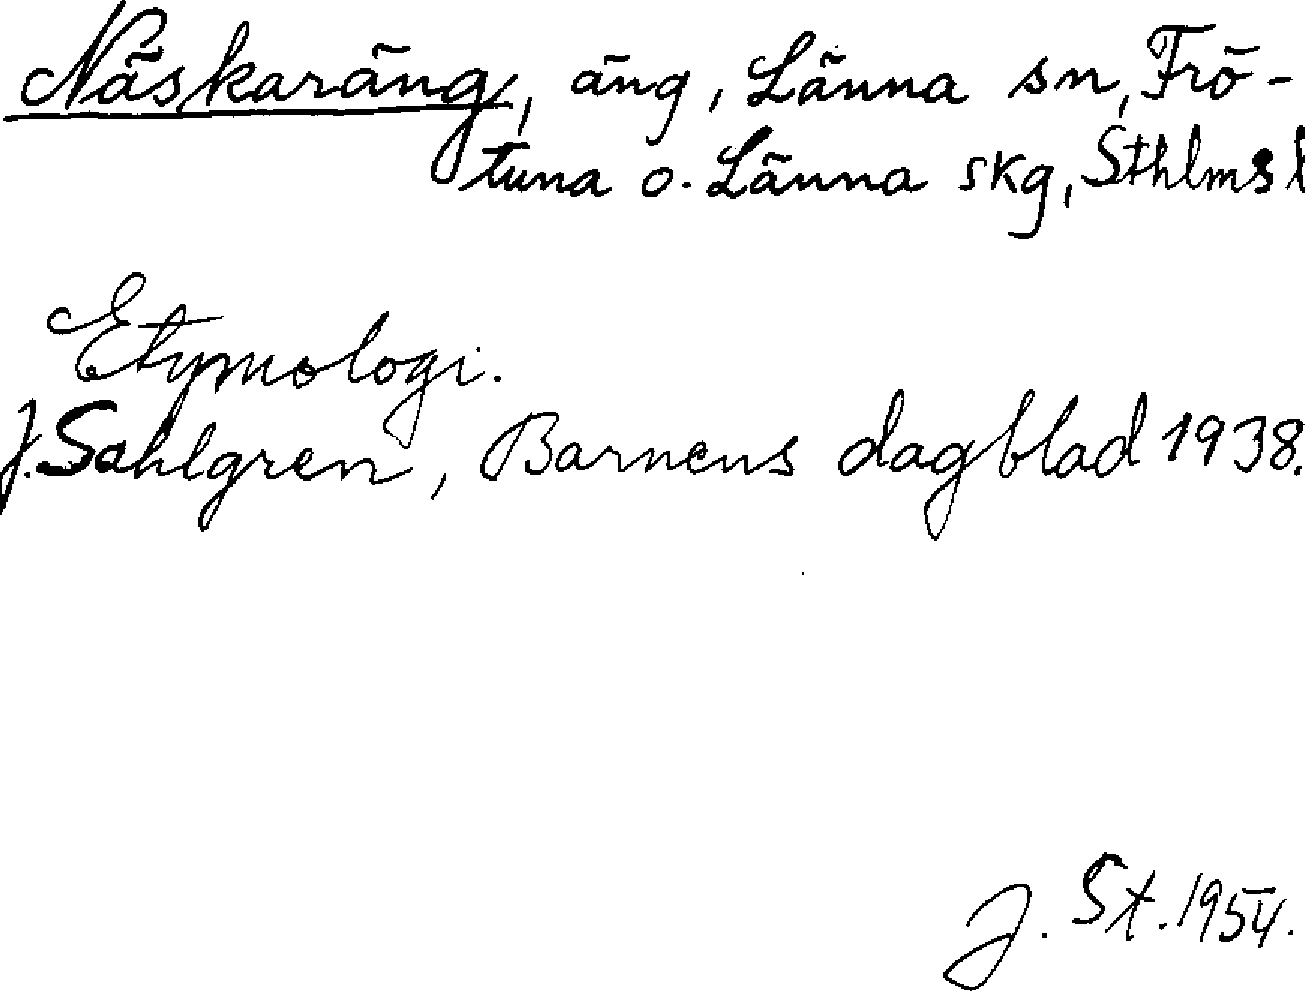 Näskaräng, äng, Länna sn, Frö-
tuna o. Länna skg, Sthlms l
Etymologi.
J. Sahlgren, Barnens dagblad 1938.
J. St. 1954.